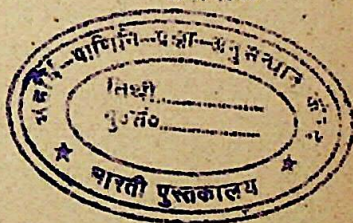 महर्षि-पाणिनि-प्रज्ञा-अनुसन्धान केन्द्र
तिथी
पु०सं०
★ भारती पुस्तकालय ★